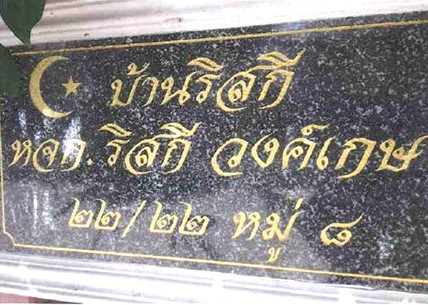 บ้านริสกี
หจก. ริสกี วงค์เกษ
๒๒/๒๒ หมู่ ๘